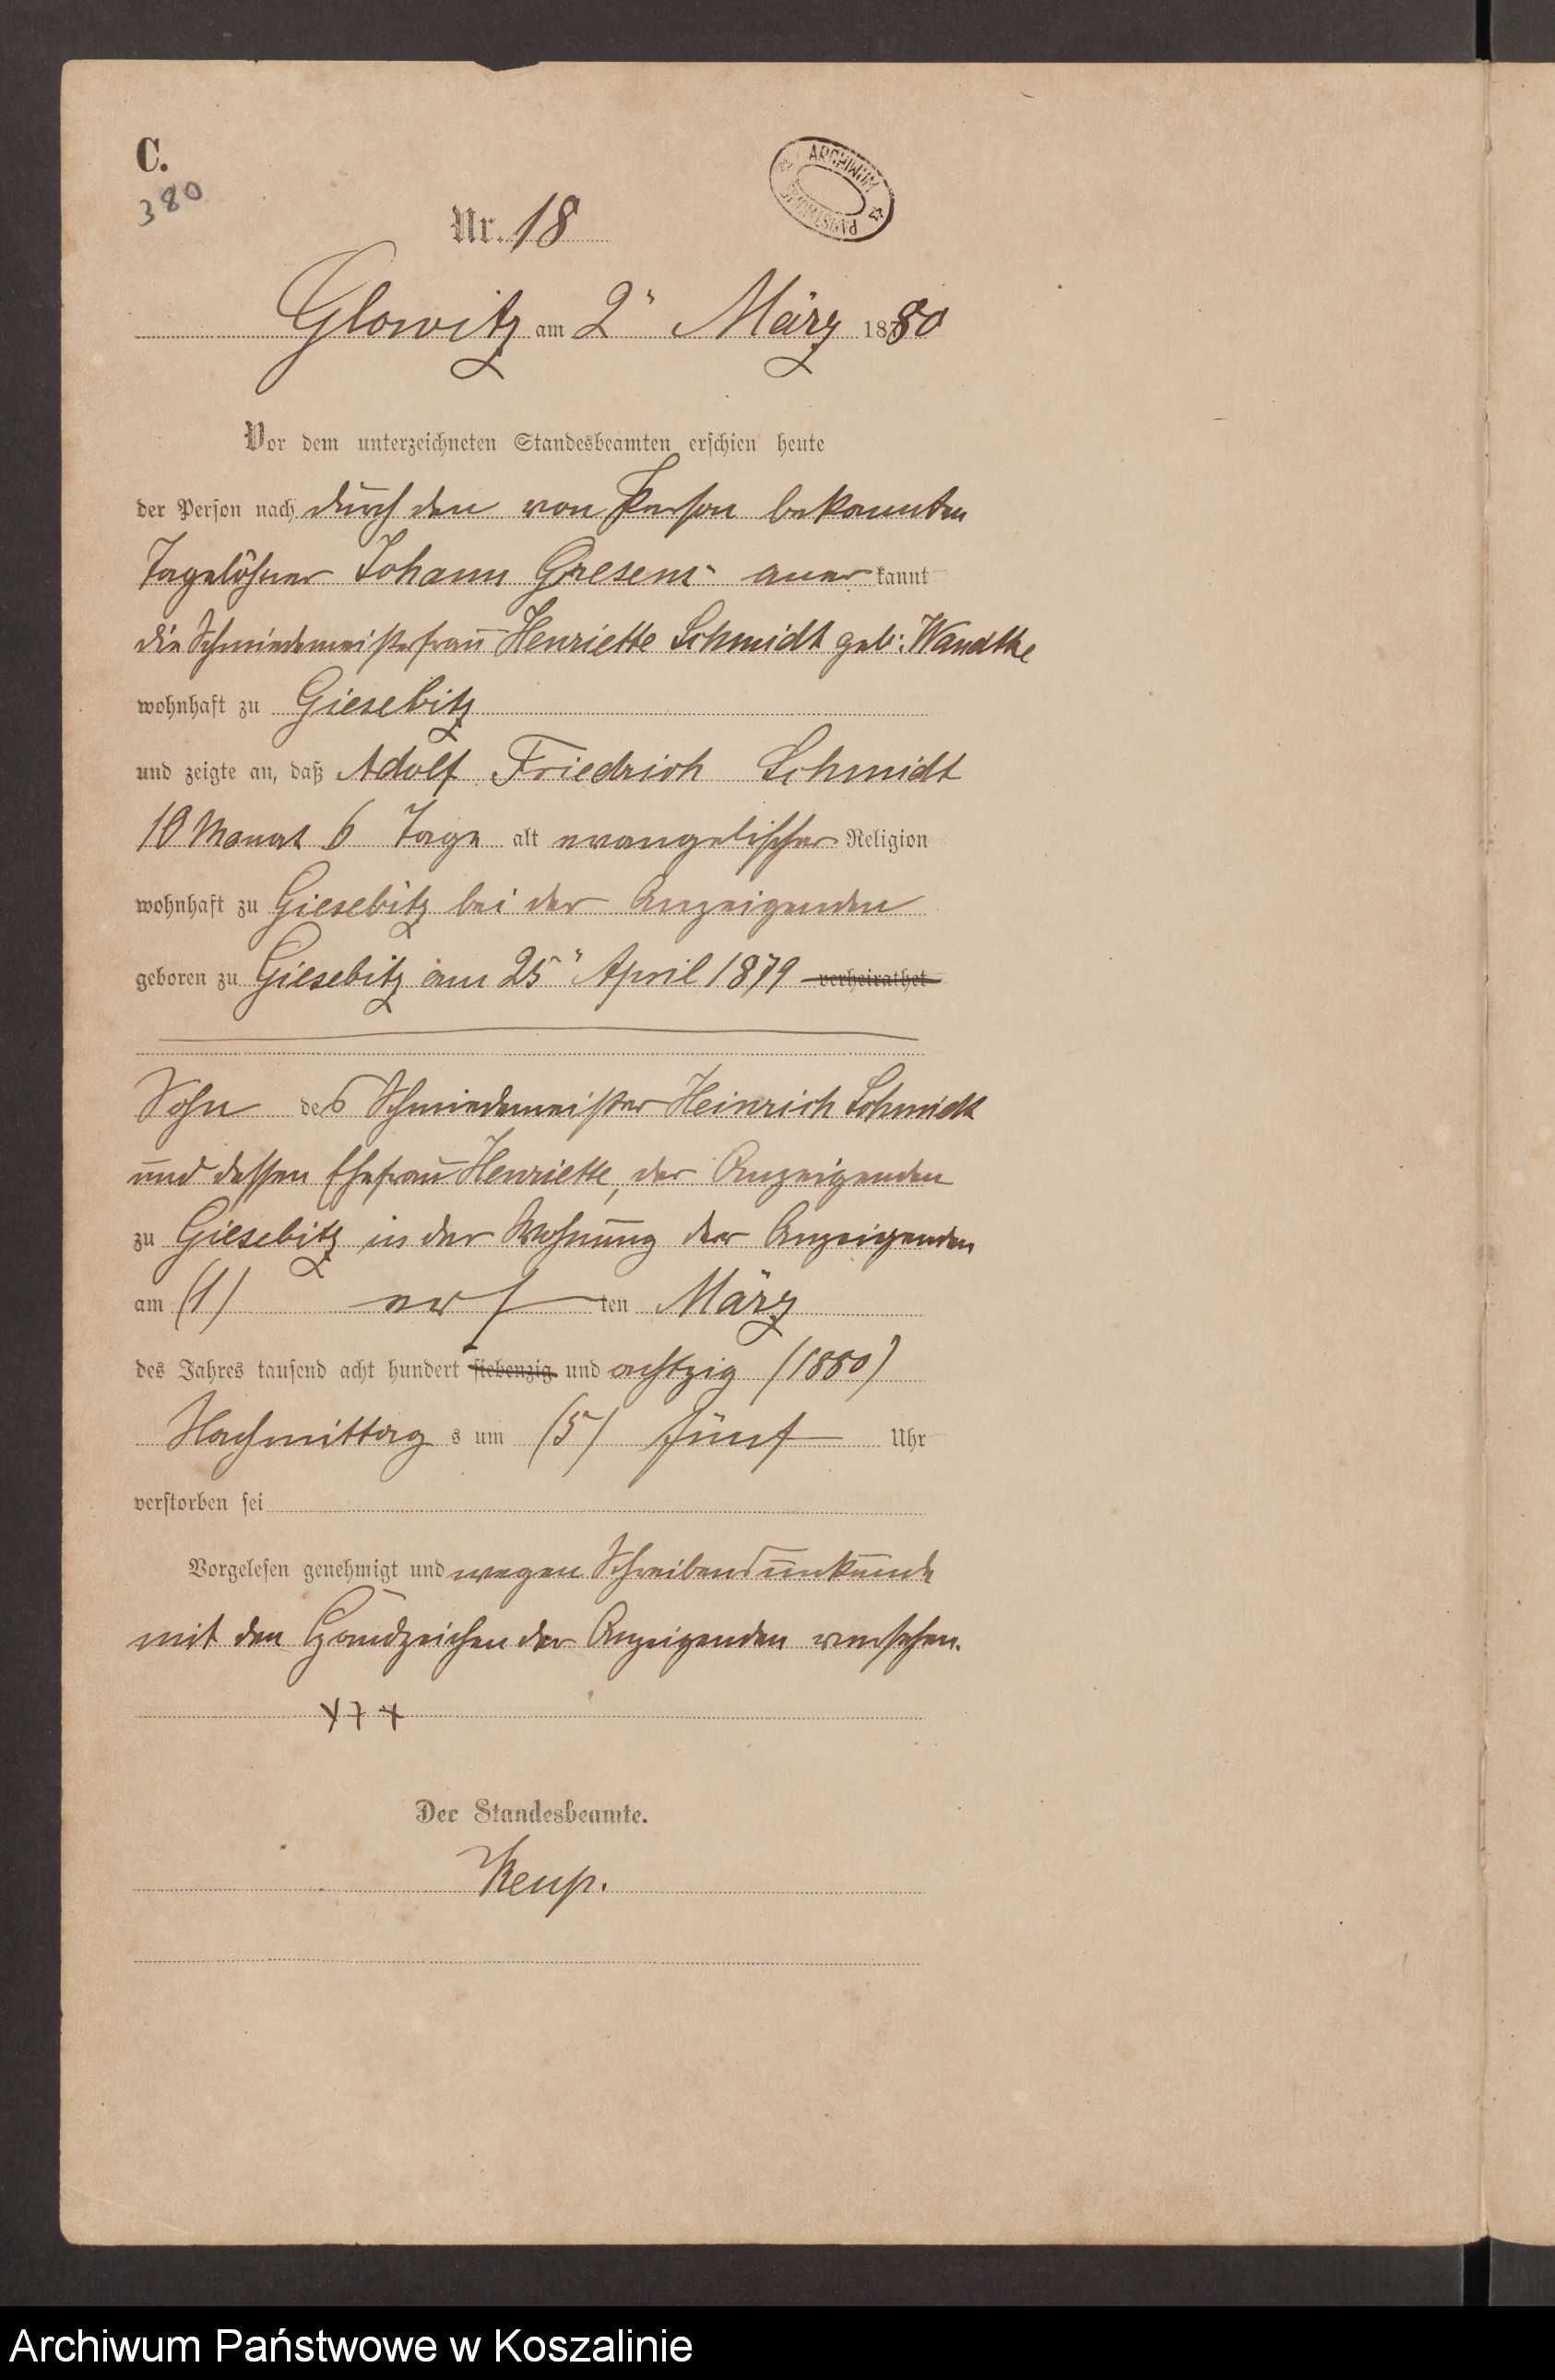 C.
380
ARCHIWUM PAŃSTWOWE
Nr. 18
Glowitz am 2" März 1880
Vor dem unterzeichneten Standesbeamten erschien heute
der Person nach durch den von Person bekannten
Tagelöhner Johann Gresens aner kannt
die Schmiedemeisterfrau Henriette Schmidt geb: Wandtke
wohnhaft zu Giesebitz
und zeigte an, daß Adolf Friedrich Schmidt
10 Monat 6 Tage alt evangelischer Religion
wohnhaft zu Giesebitz bei der Anzeigenden
geboren zu Giesebitz am 25" April 1879 verheirathet
Sohn des Schmiedemeister Heinrich Schmidt
und dessen Ehefrau Henriette, der Anzeigenden
zu Giesebitz in der Wohnung der Anzeigenden
am (1) ers ten März
des Jahres tausend acht hundert siebenzig und achtzig (1880)
Nachmittag s um (5) fünf Uhr
verstorben sei
Vorgelesen genehmigt und wegen Schreibensunkunde
mit den Handzeichen der Anzeigenden versehen.
+++
Der Standesbeamte.
Keup.
Archiwum Państwowe w Koszalinie